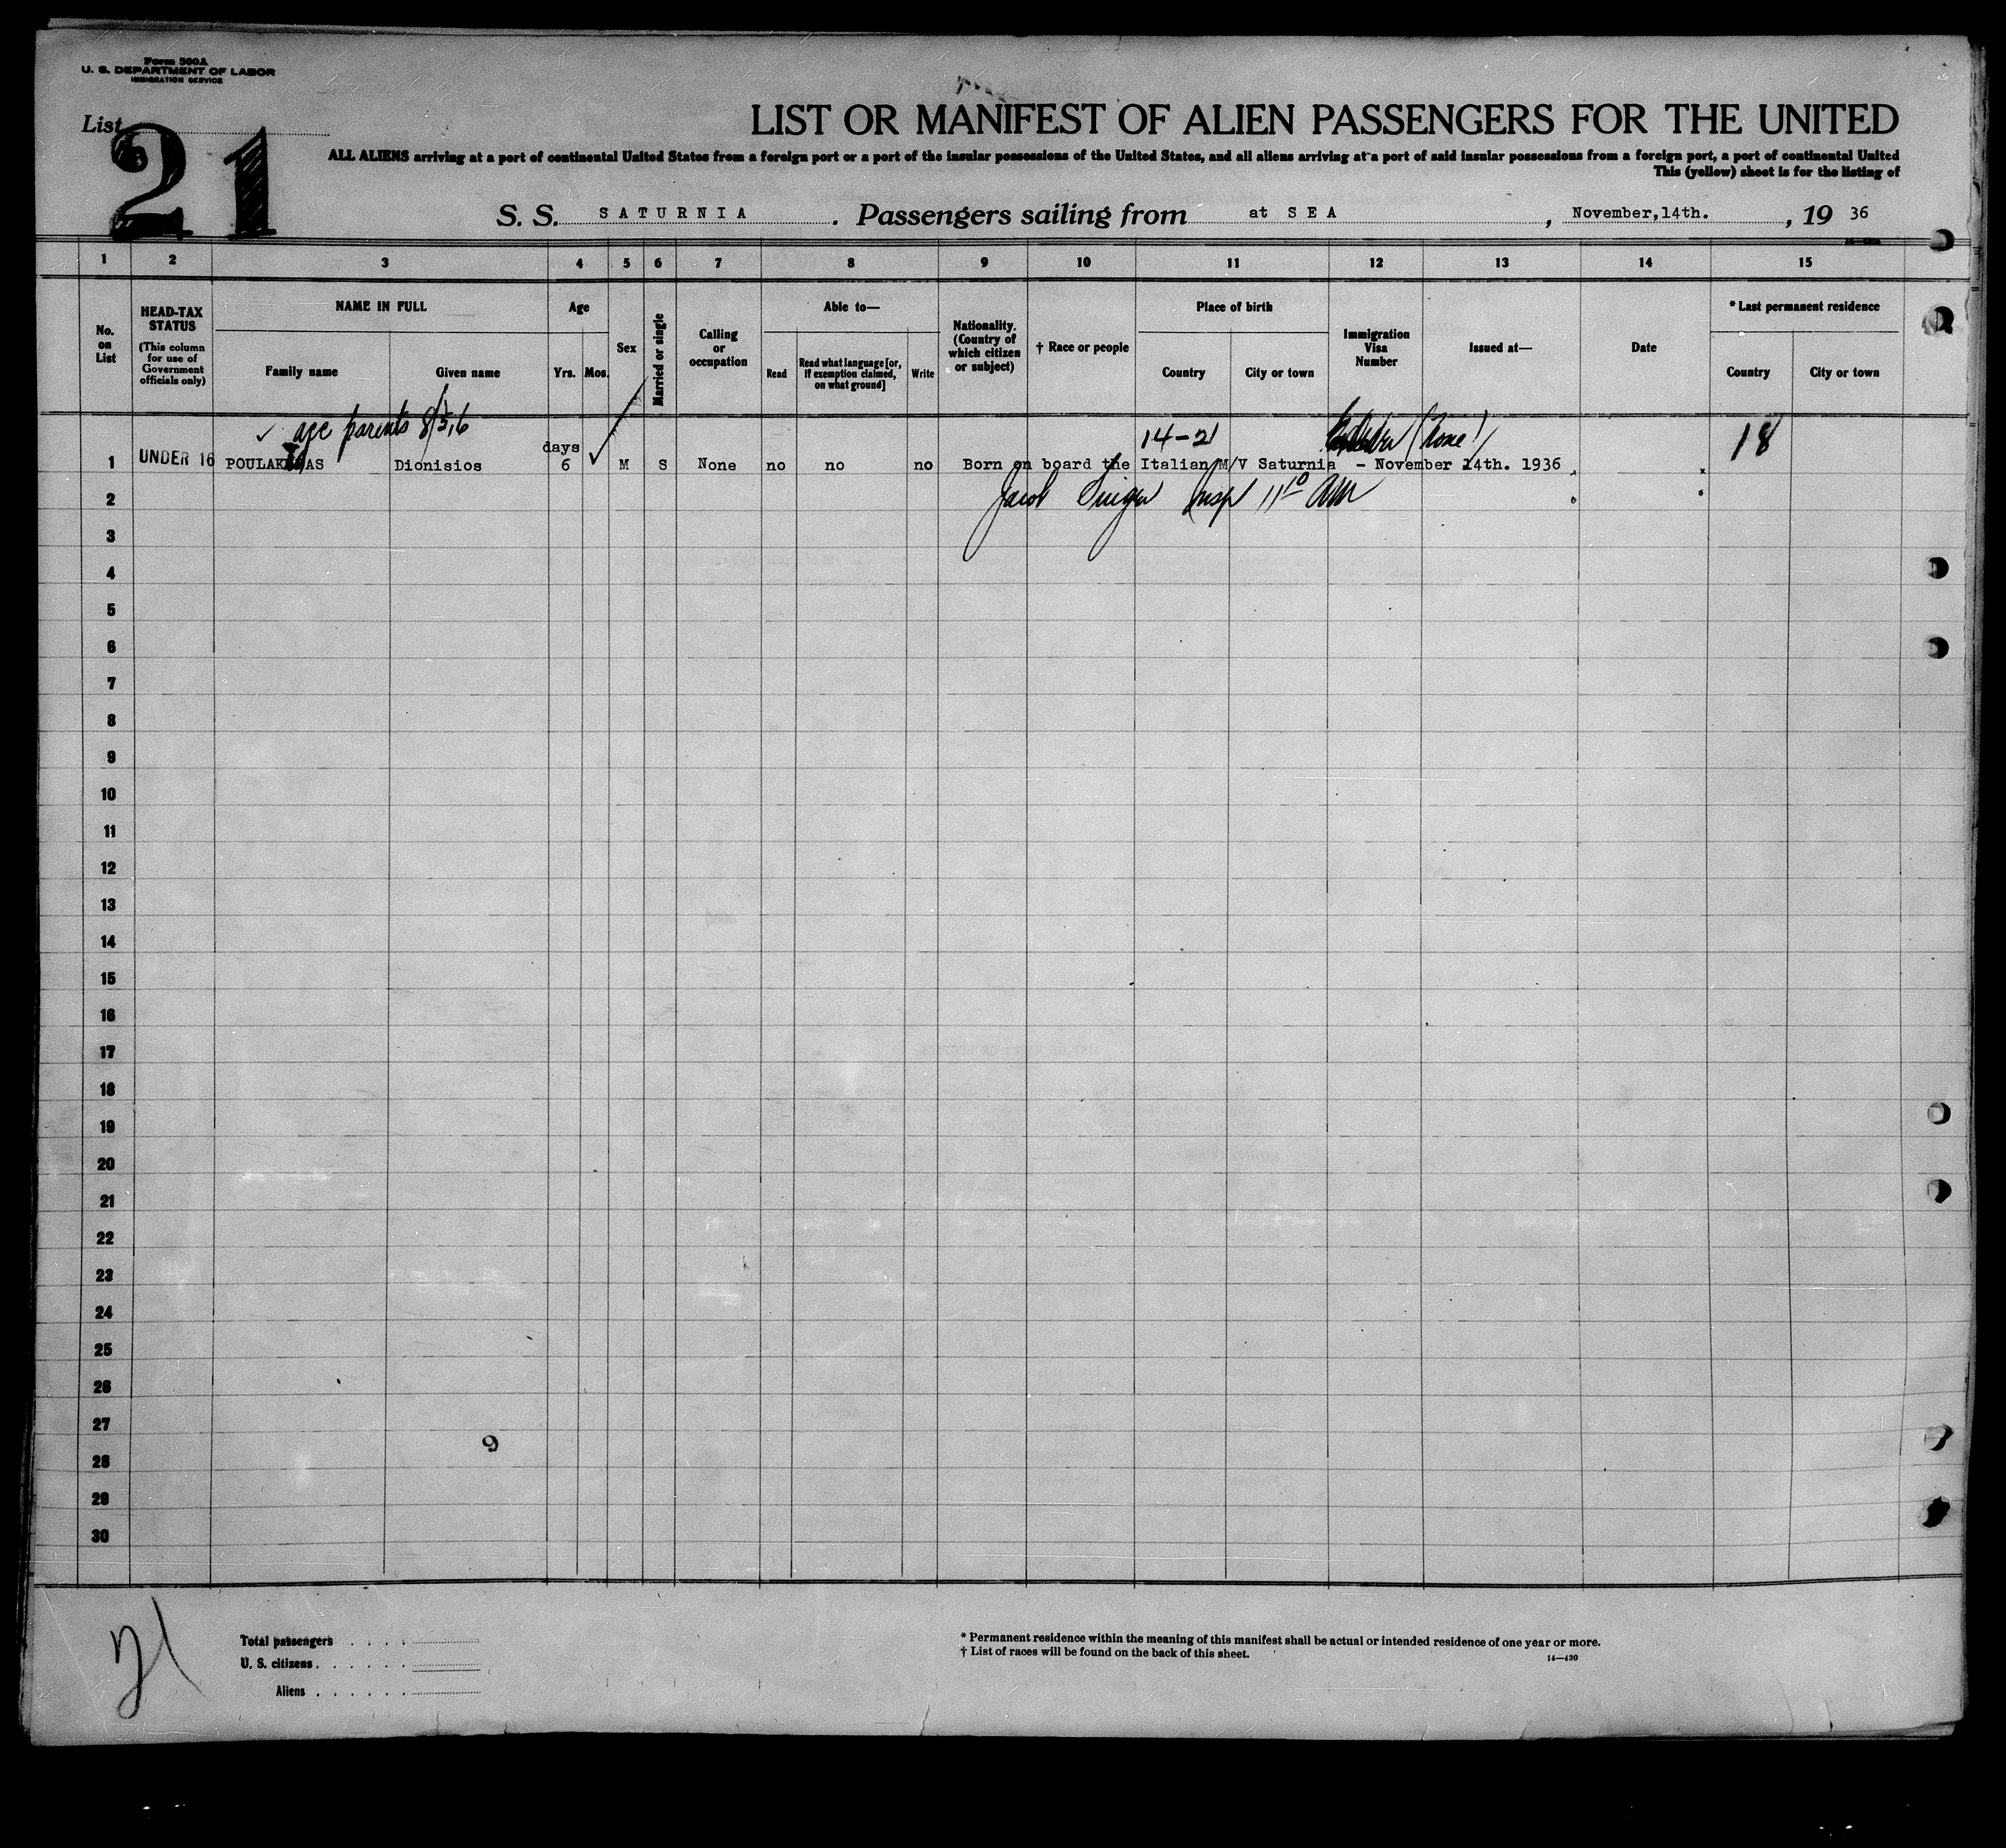 Form 500A
U. S. DEPARTMENT OF LABOR
IMMIGRATION SERVICE
List 21
LIST OR MANIFEST OF ALIEN PASSENGERS FOR THE UNITED
ALL ALIENS arriving at a port of continental United States from a foreign port or a port of the insular possessions of the United States, and all aliens arriving at a port of said insular possessions from a foreign port, a port of continental United
This (yellow) sheet is for the listing of
S. S. SATURNIA. Passengers sailing from at SEA, November,14th., 19 36
1 2 3 4 5 6 7 8 9 10 11 12 13 14 15
No. on List
HEAD-TAX STATUS
(This column for use of Government officials only)
NAME IN FULL
Family name
Given name
Age
Yrs. Mos.
Sex
Married or single
Calling or occupation
Able to—
Read
Read what language [or, if exemption claimed, on what ground]
Write
Nationality. (Country of which citizen or subject)
† Race or people
Place of birth
Country
City or town
Immigration Visa Number
Issued at—
Date
* Last permanent residence
Country
City or town
✓ age parents 8/5,6
14-21
18
1 UNDER 16 Dionisios days 6 M S None no no no Born on board the Italian M/V Saturnia - November 14th. 1936
2 Jacob Insp 11 10 AM
3
4
5
6
7
8
9
10
11
12
13
14
15
16
17
18
19
20
21
22
23
24
25
26
27
9
28
29
30
21
Total passengers
U. S. citizens
Aliens
* Permanent residence within the meaning of this manifest shall be actual or intended residence of one year or more.
† List of races will be found on the back of this sheet.
14—430